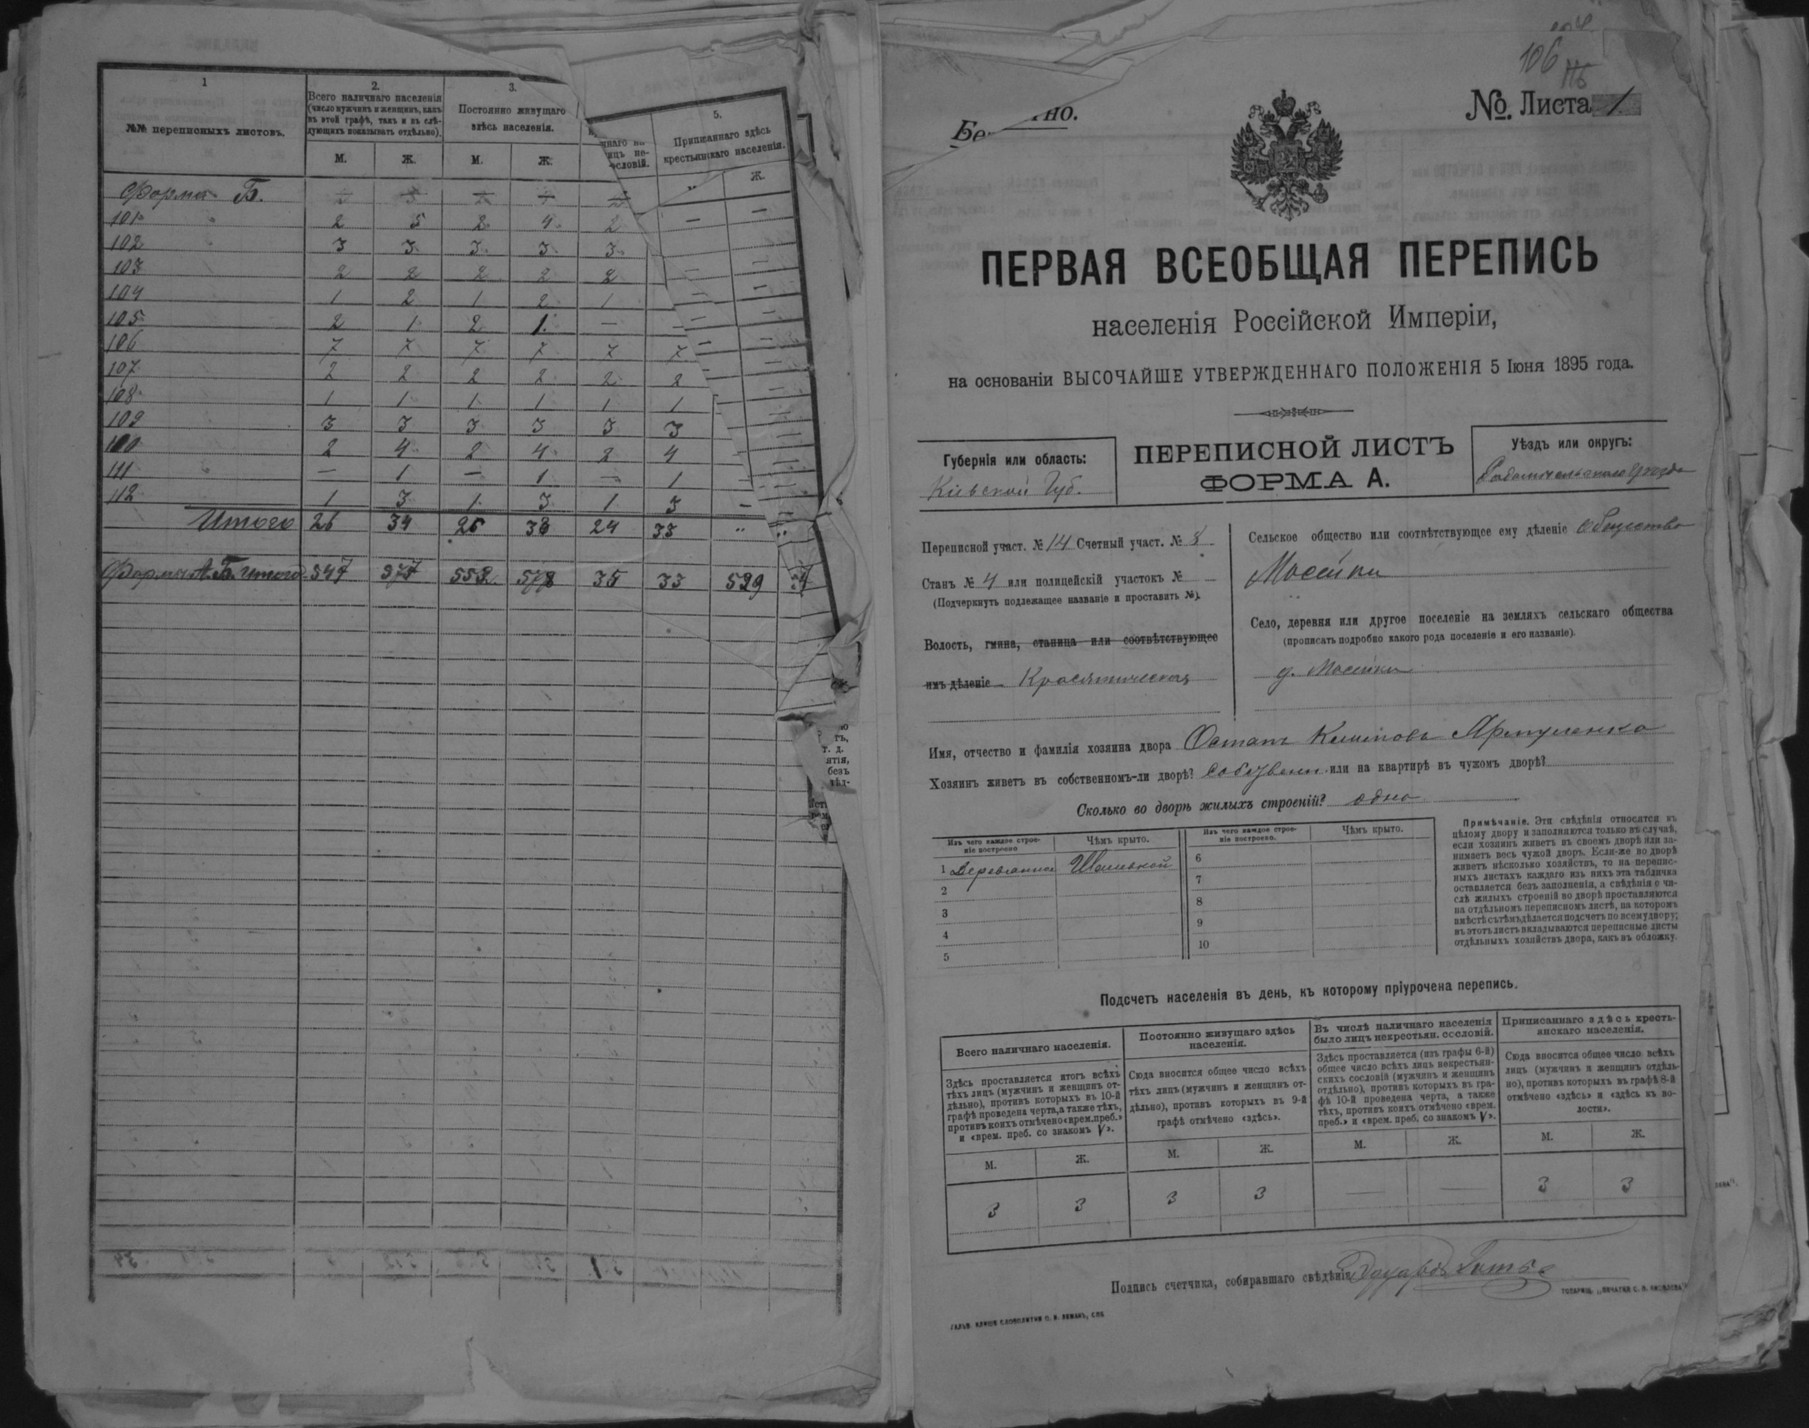 1
№№ переписныхъ листовъ.
2.
Всего наличнаго населенія
(число мужчинъ и женщинъ, какъ
въ этой графѣ, такъ и въ слѣ-
дующихъ показывать отдѣльно).
М. Ж.
3.
Постоянно живущаго
здѣсь населенія.
М. Ж.
5.
Приписаннаго здѣсь
крестьянскаго населенія.
Ж.
Форма Б.
101 2 5 2 4 2 — —
102 3 3 3 3 3 —
103 2 2 2 2 2 — —
104 1 2 1 2 1 — —
105 2 1 2 1 — — —
106 7 7 7 7 7 7 — —
107 2 2 2 2 2 2 — —
108 1 1 1 1 1 1 —
109 3 3 3 3 3 3 —
110 2 4 2 4 2 4 —
111 — 1 — 1 — 1 —
112 1 3 1 3 1 3 — —
Итого 26 34 26 33 24 33 „
Форма А. Б. итого 33 529
Бе
но.
106
№. Листа 1.
ПЕРВАЯ ВСЕОБЩАЯ ПЕРЕПИСЬ
населенія Россійской Имперіи,
на основаніи ВЫСОЧАЙШЕ УТВЕРЖДЕННАГО ПОЛОЖЕНІЯ 5 Іюня 1895 года.
Губернія или область:
Кіевской Губ.
ПЕРЕПИСНОЙ ЛИСТЪ
ФОРМА А.
Уѣздъ или округъ:
Переписной участ. № 14 Счетный участ. № 8
Станъ № 4 или полицейскій участокъ № —
(Подчеркнуть подлежащее названіе и проставить №).
Волость, гмина, станица или соотвѣтствующее
имъ дѣленіе Красятическая
Сельское общество или соотвѣтствующее ему дѣленіе общество
Мосейки
Село, деревня или другое поселеніе на земляхъ сельскаго общества
(прописать подробно какого рода поселеніе и его названіе).
д. Мосейки
Имя, отчество и фамилія хозяина двора Остапъ
Хозяинъ живетъ въ собственномъ-ли дворѣ? собствен. или на квартирѣ въ чужомъ дворѣ?
Сколько во дворѣ жилыхъ строеній? одно
Изъ чего каждое строе-
ніе построено
Чѣмъ крыто.
Изъ чего каждое строе-
ніе построено.
Чѣмъ крыто.
1 6
2 7
3 8
4 9
5 10
Примѣчаніе. Эти свѣдѣнія относятся къ
цѣлому двору и заполняются только въ случаѣ,
если хозяинъ живетъ въ своемъ дворѣ или за-
нимаетъ весь чужой дворъ. Если-же во дворѣ
живетъ нѣсколько хозяйствъ, то на перепис-
ныхъ листахъ каждаго изъ нихъ эта табличка
оставляется безъ заполненія, а свѣдѣнія о чи-
слѣ жилыхъ строеній во дворѣ проставляются
на отдѣльномъ переписномъ листѣ, на которомъ
вмѣстѣ съ тѣмъ дѣлается подсчетъ по всему двору;
въ этотъ листъ вкладываются переписные листы
отдѣльныхъ хозяйствъ двора, какъ въ обложку.
Подсчетъ населенія въ день, къ которому пріурочена перепись.
Всего наличнаго населенія.
Здѣсь проставляется итогъ всѣхъ
тѣхъ лицъ (мужчинъ и женщинъ от-
дѣльно), противъ которыхъ въ 10-й
графѣ проведена черта, а также тѣхъ,
противъ коихъ отмѣчено «врем. преб.»
и «врем. преб. со знакомъ V».
Постоянно живущаго здѣсь
населенія.
Сюда вносится общее число всѣхъ
тѣхъ лицъ (мужчинъ и женщинъ от-
дѣльно), противъ которыхъ въ 9-й
графѣ отмѣчено «здѣсь».
Въ числѣ наличнаго населенія
было лицъ некрестьян. сословій.
Здѣсь проставляется (изъ графы 6-й)
общее число всѣхъ лицъ некрестьян-
скихъ сословій (мужчинъ и женщинъ
отдѣльно), противъ которыхъ въ гра-
фѣ 10-й проведена черта, а также
тѣхъ, противъ коихъ отмѣчено «врем.
преб.» и «врем. преб. со знакомъ V».
Приписаннаго здѣсь кресть-
янскаго населенія.
Сюда вносится общее число всѣхъ
лицъ (мужчинъ и женщинъ отдѣль-
но), противъ которыхъ въ графѣ 8-й
отмѣчено «здѣсь» и «здѣсь въ во-
лости».
М. Ж. М. Ж. М. Ж. М. Ж.
3 3 3 3 — — 3 3
Подпись счетчика, собиравшаго свѣдѣнія